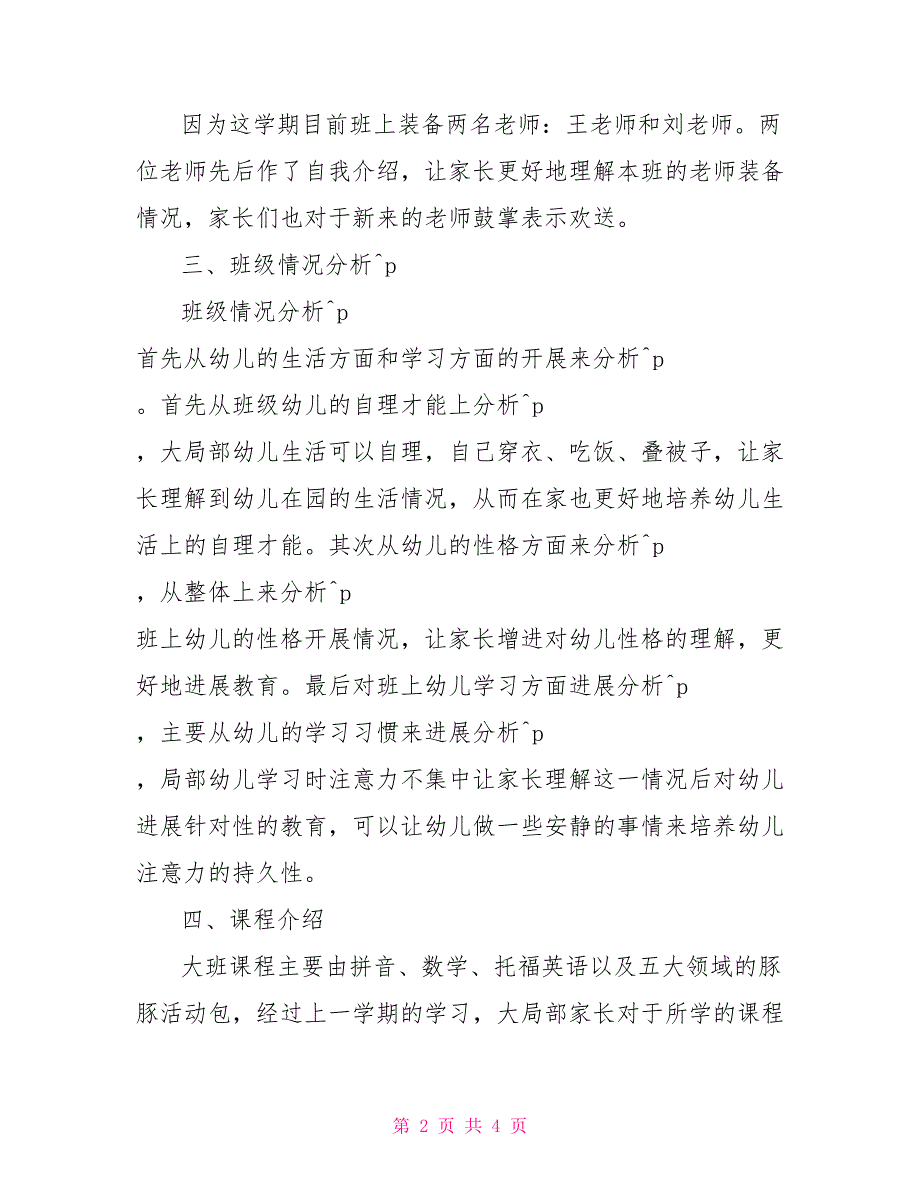 因为这学期目前班上装备两名老师：王老师和刘老师。两
位老师先后作了自我介绍，让家长更好地理解本班的老师装备
情况，家长们也对于新来的老师鼓掌表示欢送。
三、班级情况分析^p
班级情况分析^p
首先从幼儿的生活方面和学习方面的开展来分析^p
。首先从班级幼儿的自理才能上分析^p
，大局部幼儿生活可以自理，自己穿衣、吃饭、叠被子，让家
长理解到幼儿在园的生活情况，从而在家也更好地培养幼儿生
活上的自理才能。其次从幼儿的性格方面来分析^p
，从整体上来分析^p
班上幼儿的性格开展情况，让家长增进对幼儿性格的理解，更
好地进展教育。最后对班上幼儿学习方面进展分析^p
，主要从幼儿的学习习惯来进展分析^p
，局部幼儿学习时注意力不集中让家长理解这一情况后对幼儿
进展针对性的教育，可以让幼儿做一些安静的事情来培养幼儿
注意力的持久性。
四、课程介绍
大班课程主要由拼音、数学、托福英语以及五大领域的豚
豚活动包，经过上一学期的学习，大局部家长对于所学的课程
第 2 页 共 4 页